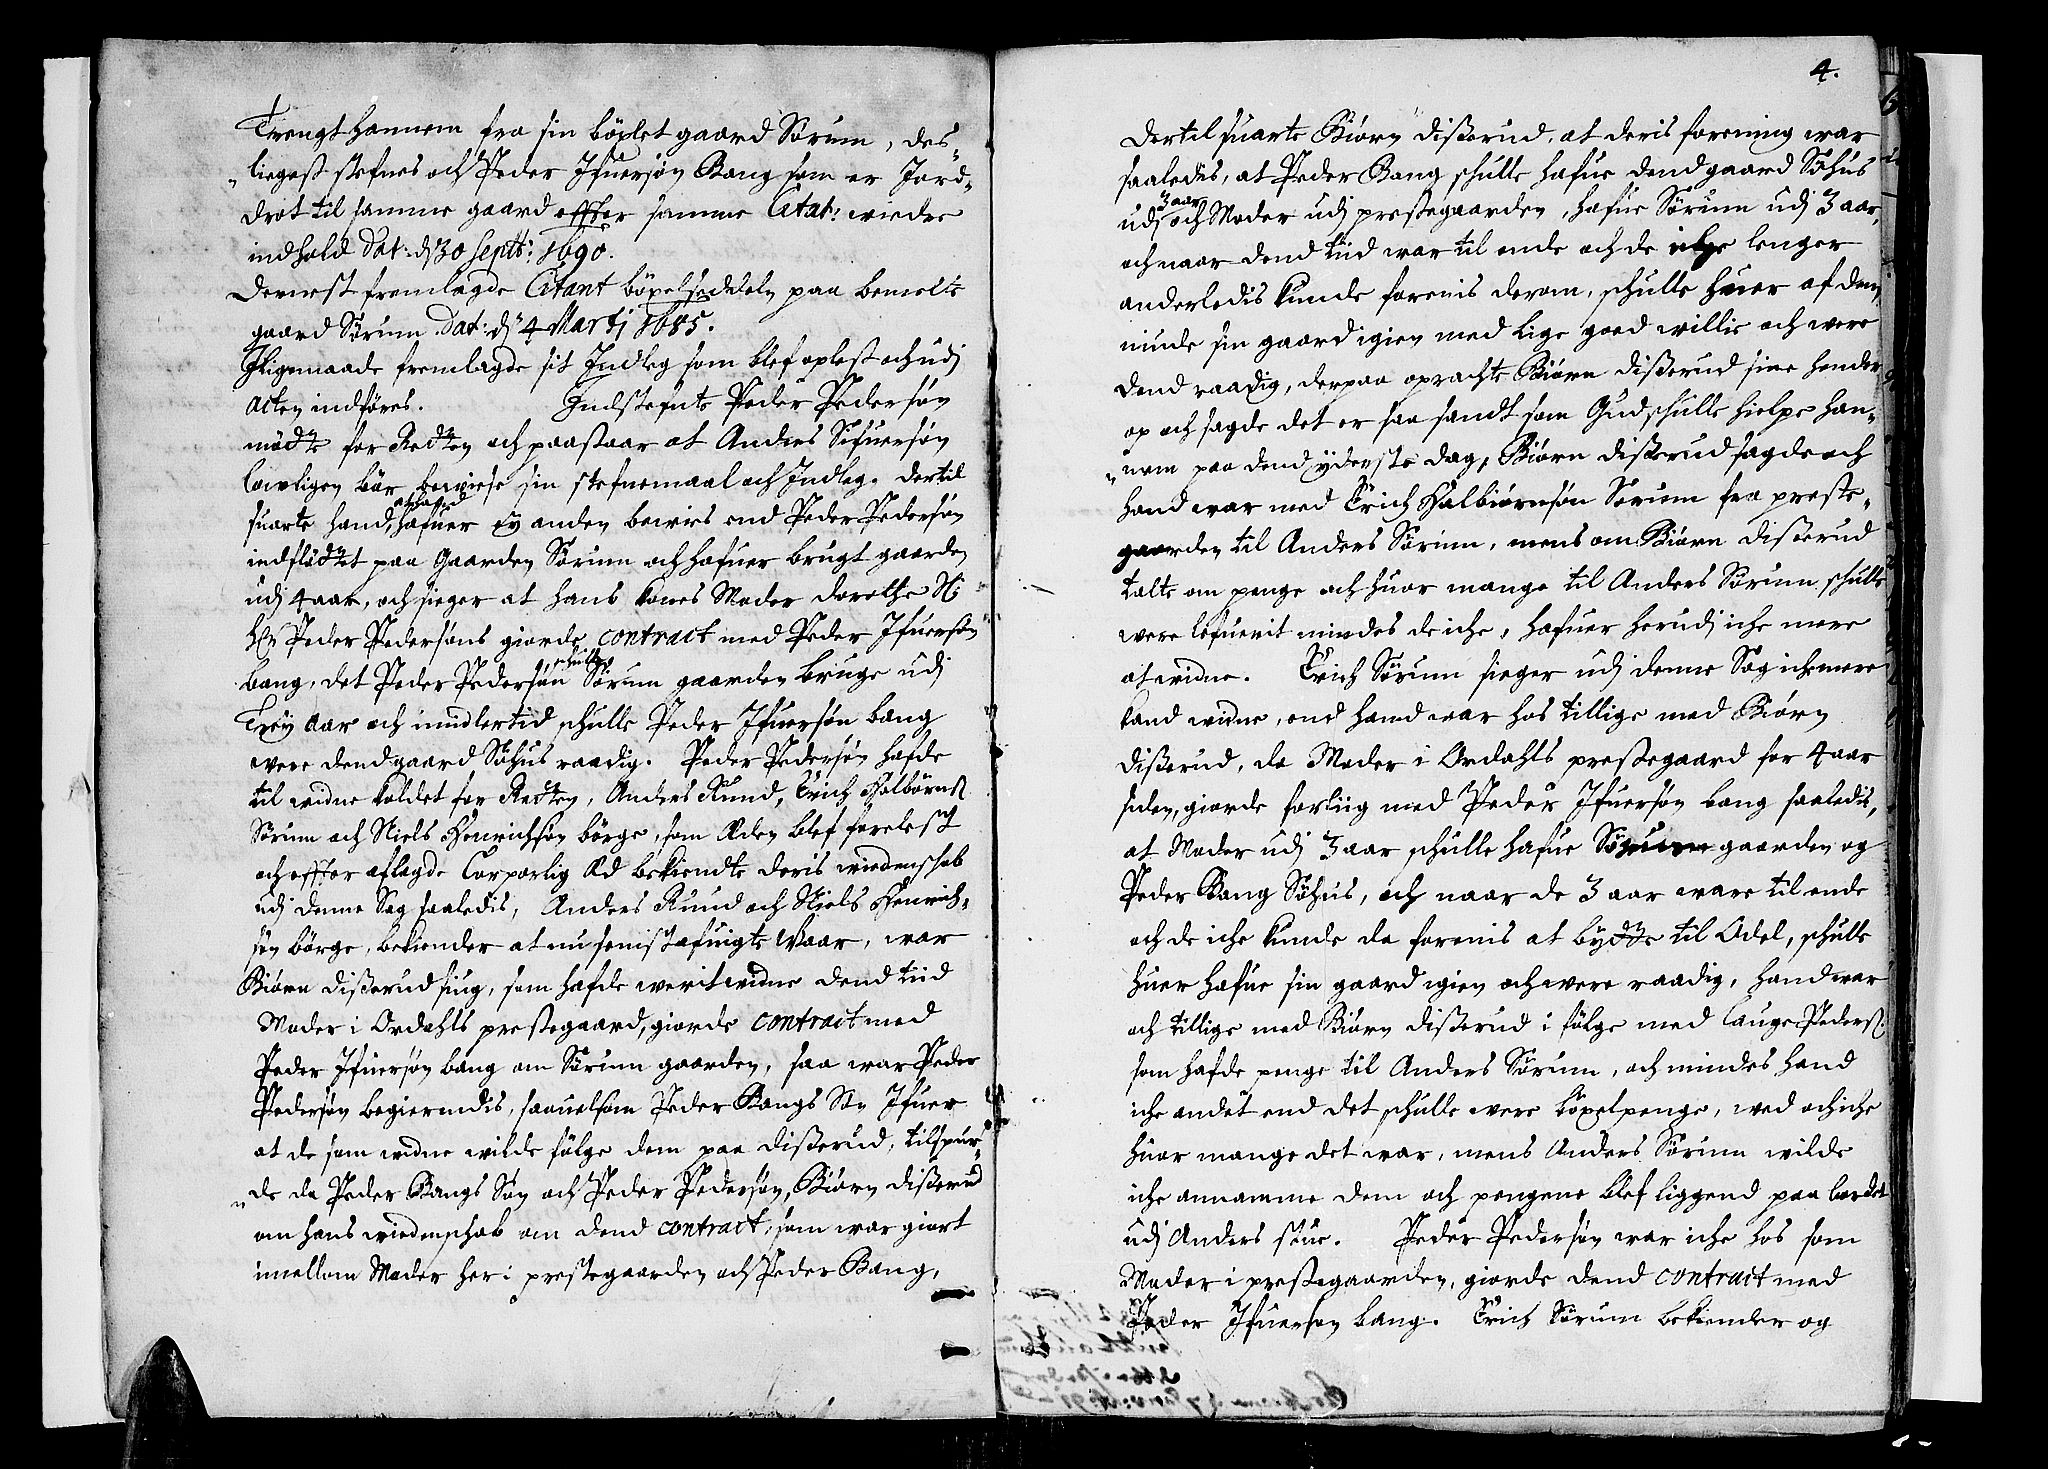 Trengt hannem fra sin böxlet gaard Sørum, des-
ligest stefnes och Peder Ifuersøn Bang som er Jord-
drot til samme gaard effter samme Citat: wiedre
indhold Dat: d 30 Septb: 1690.
Dernest fremlagde Citant böxelseddeln paa bemelte
gaard Sørum Dat: d 4 Martj 1685.
Jligemaade fremlagde sit Indleg som blef oplest och udj
acten indføres. Indstefnte Peder Pedersøn
mødte for Retten och paastaar at Anders Sifuersøn
lowligen bör bewiese sin stefnemaal och Indleg. Dertil
suarte hand, at hand hafuer ey anden bewies end Peder Pedersøn
indfløttet paa Gaarden Sørum och hafuer brugt gaarden
udj 4 aar, och sieger at hans kones Moder Dorethe Sl:
Hr Peder Pedersøns giorde contract med Peder Ifuersøn
bang, det Peder Pedersøn schulle Sørum gaarden bruge udj
Trey aar och imidlertid schulle Peder Ifuersøn bang
were dend gaard Söhus raadig. Peder Pedersøn hafde
til widne kaldet for Retten, Anders Rund, Erich Halbörns:
Sørum och Niels Henrichsøn börge, som Æden blef forelest
och effter aflagde Corporlig Æd bekiendte deris wiedenschab
udj denne Sag saaledis, Anders Rund och Niels Henrich-
søn börge, bekiender at nu senist afuigte Waar, war
Biörn Disserud siug, som hafde werit widne dend tiid
Moder i Ordahls prestegaard, giorde contract med
Peder Ifuersøn bang om Sørum gaarden, saa war Peder
Pedersøn begierendis, saauelsom Peder Bangs Sön Ifuer
at de som widne wilde fölge dem paa Disserud, tilspur-
de da Peder Bangs Søn och Peder Pedersøn, Biörn Disserud
om hans wiedenschab om dend contract, som war giort
imellom Moder her i prestegaarden och Peder Bang,
4.
Dertil suarte Biörn Disserud, at deris forening war
saaledis, at Peder Bang schulle hafue dend gaard Söhus
udj 3 aar och Moder udj prestegaarden, hafue Sørum udj 3 aar,
och naar dend tiid war til ende och de iche lenger
anderledis kunde forenis derom, schulle huer af dem
niude sin gaard igien med lige goed willie och were
dend raadig, derpaa oprachte Biörn Disserud sine hender
op och sagde det er saa sandt som Gud schulle hielpe han-
nem paa dend yderste dag, Biörn Disserud sagde och
hand war med Erich Halbiörnsøn Sørum fra preste-
gaarden til Anders Sørum, mens om Biörn Disserud
talte om penge och huor mange til Anders Sørum schulle
were lefuerit mindes de iche, hafuer herudj iche mere
at widne. Erich Sørum sieger udj denne Sag iche mere
kand widne, end hand war hos tillige med Biörn
Disserud, da Moder i Ordahls prestegaard for 4 aar
siden, giorde forliig med Peder Ifuersøn bang saaledis,
at Moder udj 3 aar schulle hafue Sørum gaarden og
Peder Bang Söhus, och naar de 3 aar ware til ende
och de iche kunde da forenis at bytte til Odel, schulle
huer hafue sin gaard igien och were raadig, hand war
och tillige med Biörn Disserud i fölge med Lauge Peders:
som hafde penge til Anders Sørum, och mindes hand
iche andet end det schulle were böxelpenge, wed och iche
huor mange det war, mens Anders Sørum wilde
iche annamme dem och pengene blef liggend paa bordet
udj Anders stue. Peder Pedersøn war iche hos som
Moder i prestegaarden, giorde dend contract med
Peder Ifuersøn bang. Erich Sørum bekiender og